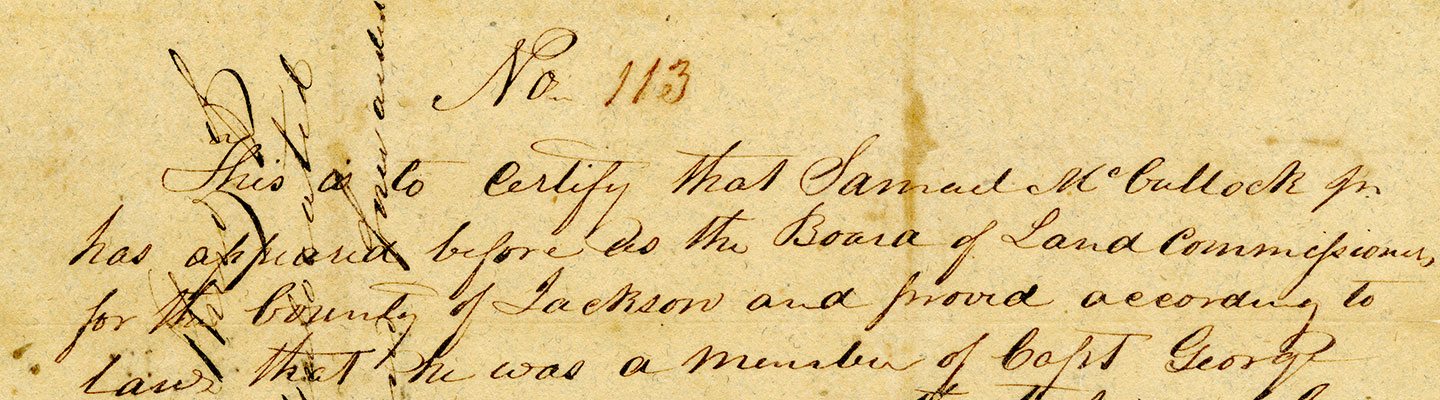 No. 113
This is to Certify that Samuel McCullock Jr
has appeared before us the Board of Land Commissioners,
for the County of Jackson and proved according to
Law that he was a member of Capt George